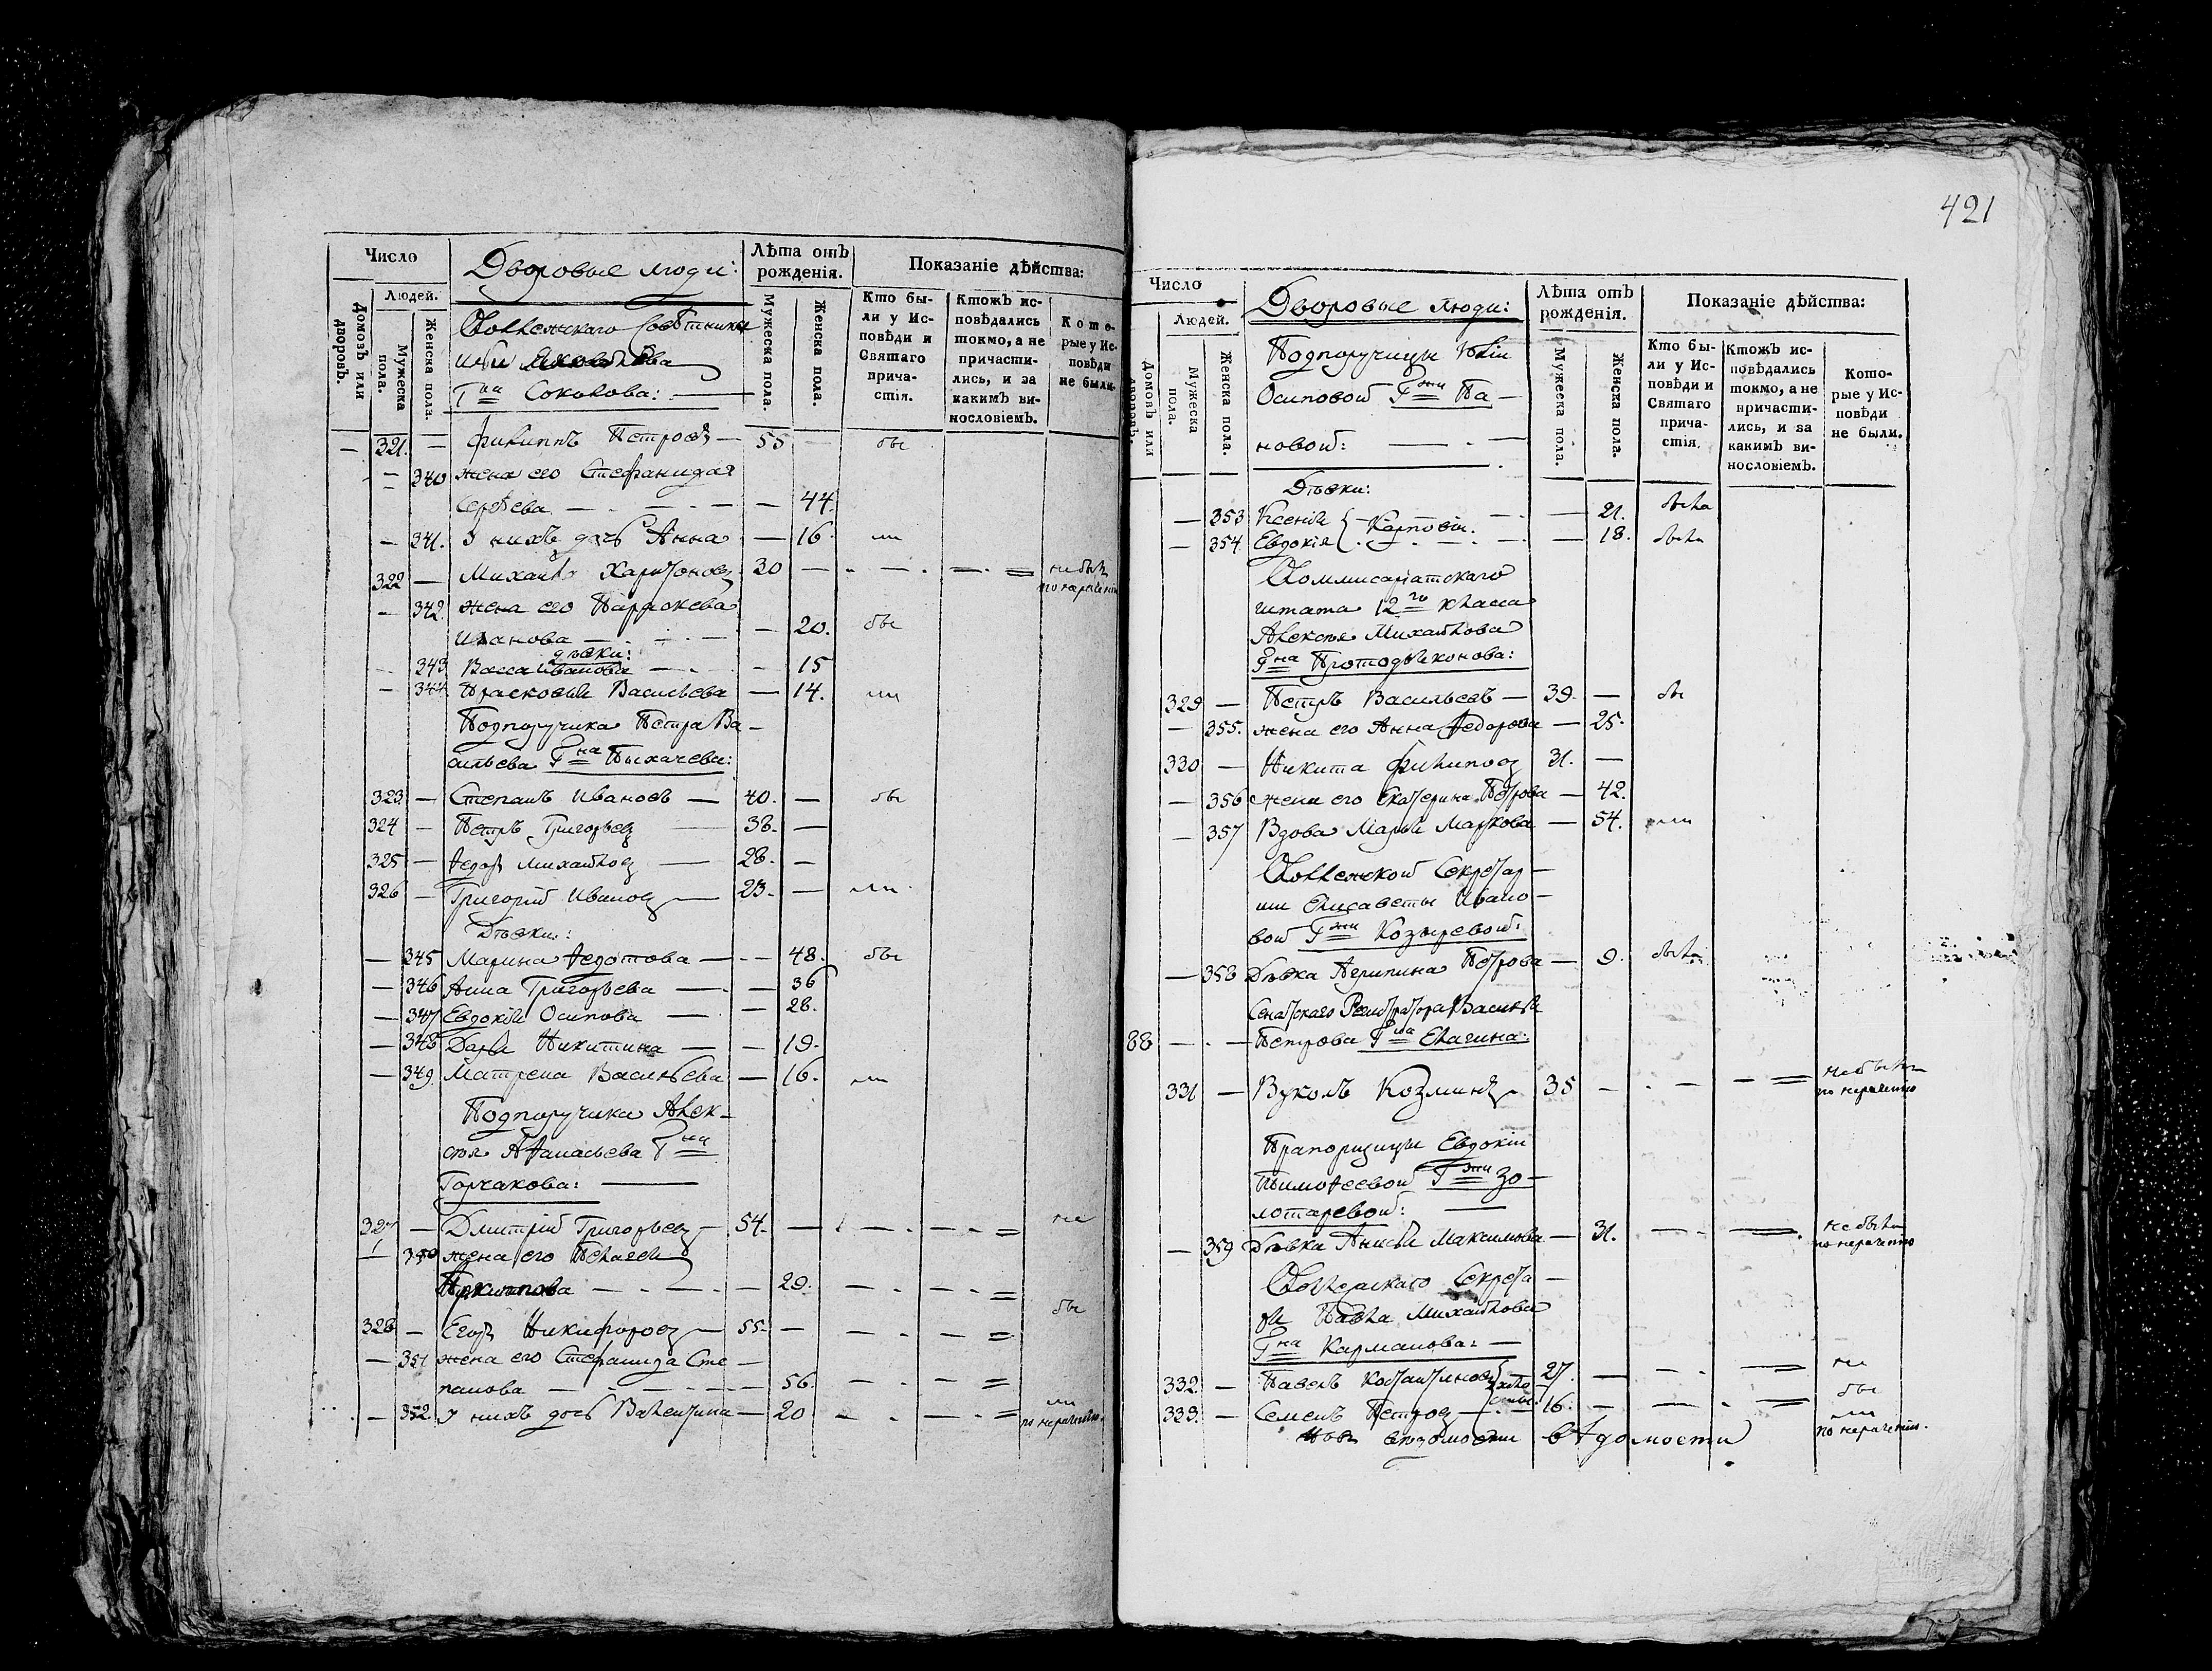 Число
Людей.
Домовъ или дворовъ.
Мужеска пола.
Женска пола.
Дворовые люди:
Лѣта отъ рожденія.
Мужеска пола.
Женска пола.
Показаніе дѣйства:
Кто бы-
ли у Ис-
повѣди и
Святаго
прича-
стія.
Ктожъ ис-
повѣдались
токмо, а не
причасти-
лись, и за
какимъ ви-
нословіемъ.
Кото-
рые у Ис-
повѣди
не были.
Коллежскаго Совѣтника
Гна Соколова: —
— 321. — Филиппъ Петровъ — 55 — бы
— 340 жена его Стефанида
Сергѣева — 44.
— 341. У нихъ дочь Анна — 16. ли
322 — Михайло Харитоновъ 30 — не былъ
по нерачению
— 342. жена его Параскева
Иванова — 20. бы
дѣвки:
— 343 Васса Иванова — 15
— 344 Прасковья Васильева — 14. ли
Подпоручика Петра Ва-
сильева Гна Пыхачева:
323. — Степанъ Ивановъ — 40. — бы
324 — Петръ Григорьевъ — 38. —
325 — Ѳедоръ Михайловъ — 28. —
326 — Григорій Ивановъ — 23. — ли
Дѣвки:
— 345 Марина Ѳедотова — 48. бы
— 346 Анна Григорьева — 36
— 347 Евдокія Осипова — 28.
— 348 Дарья Никитина — 19.
— 349. Матрена Васильева — 16. ли
Подпоручика Алек-
сѣя Аѳанасьева Гна
Горчакова: —
327 — Дмитрій Григорьевъ — 54. — не
— 350 жена его Пелагея
— 29.
бы
328 — Егоръ Никифоровъ — 55. —
— 351 жена его Стефанида Сте-
панова — 56.
— 352. У нихъ дочь Валентина — 20 ли
по нерачению.
421
Число
Людей.
Домовъ или дворовъ.
Мужеска пола.
Женска пола.
Дворовые люди:
Лѣта отъ рожденія.
Мужеска пола.
Женска пола.
Показаніе дѣйства:
Кто бы-
ли у Ис-
повѣди и
Святаго
прича-
стія.
Ктожъ ис-
повѣдались
токмо, а не
причасти-
лись, и за
какимъ ви-
нословіемъ.
Кото-
рые у Ис-
повѣди
не были.
Подпоручицы Юліи
Осиповой Гжи Па-
новой: —
Дѣвки:
— 353 Ксенія Карповы. — 21. была
— 354. Евдокія — 18. была
Коммисаріатскаго
штата 12го класса
Алексѣя Михайлова
Гна Протодьяконова:
329 — Петръ Васильевъ — 39. — бы
— 355. жена его Анна Ѳедорова — 25.
330 — Никита Филиповъ 31. —
— 356 жена его Екатерина Петрова — 42.
— 357 Вдова Марья Маркова — 54. ли
Коллежской Секретар-
ши Елисаветы Ивано-
вой Гжи Козыревой:
— 358 Дѣвка Агрипина Петрова — 9. была
Сенатскаго Регистратора Василья
88 — Петрова Гна Елагина:
331 — Вуколъ Козминъ 35 — не былъ
по нерачению
Прапорщицы Евдокіи
Тимоѳеевой Гжи Зо-
лотаревой: —
— 359 Дѣвка Анисья Максимова — 31. не была
по нерачению
Коллежскаго Секрета-
ря Павла Михайлова
Гна Карманова: —
332. — Павелъ Костантиновъ — 27. — не
бы
333. — Семенъ Петровъ — 16. — ли
по нерачению.
вѣдомости